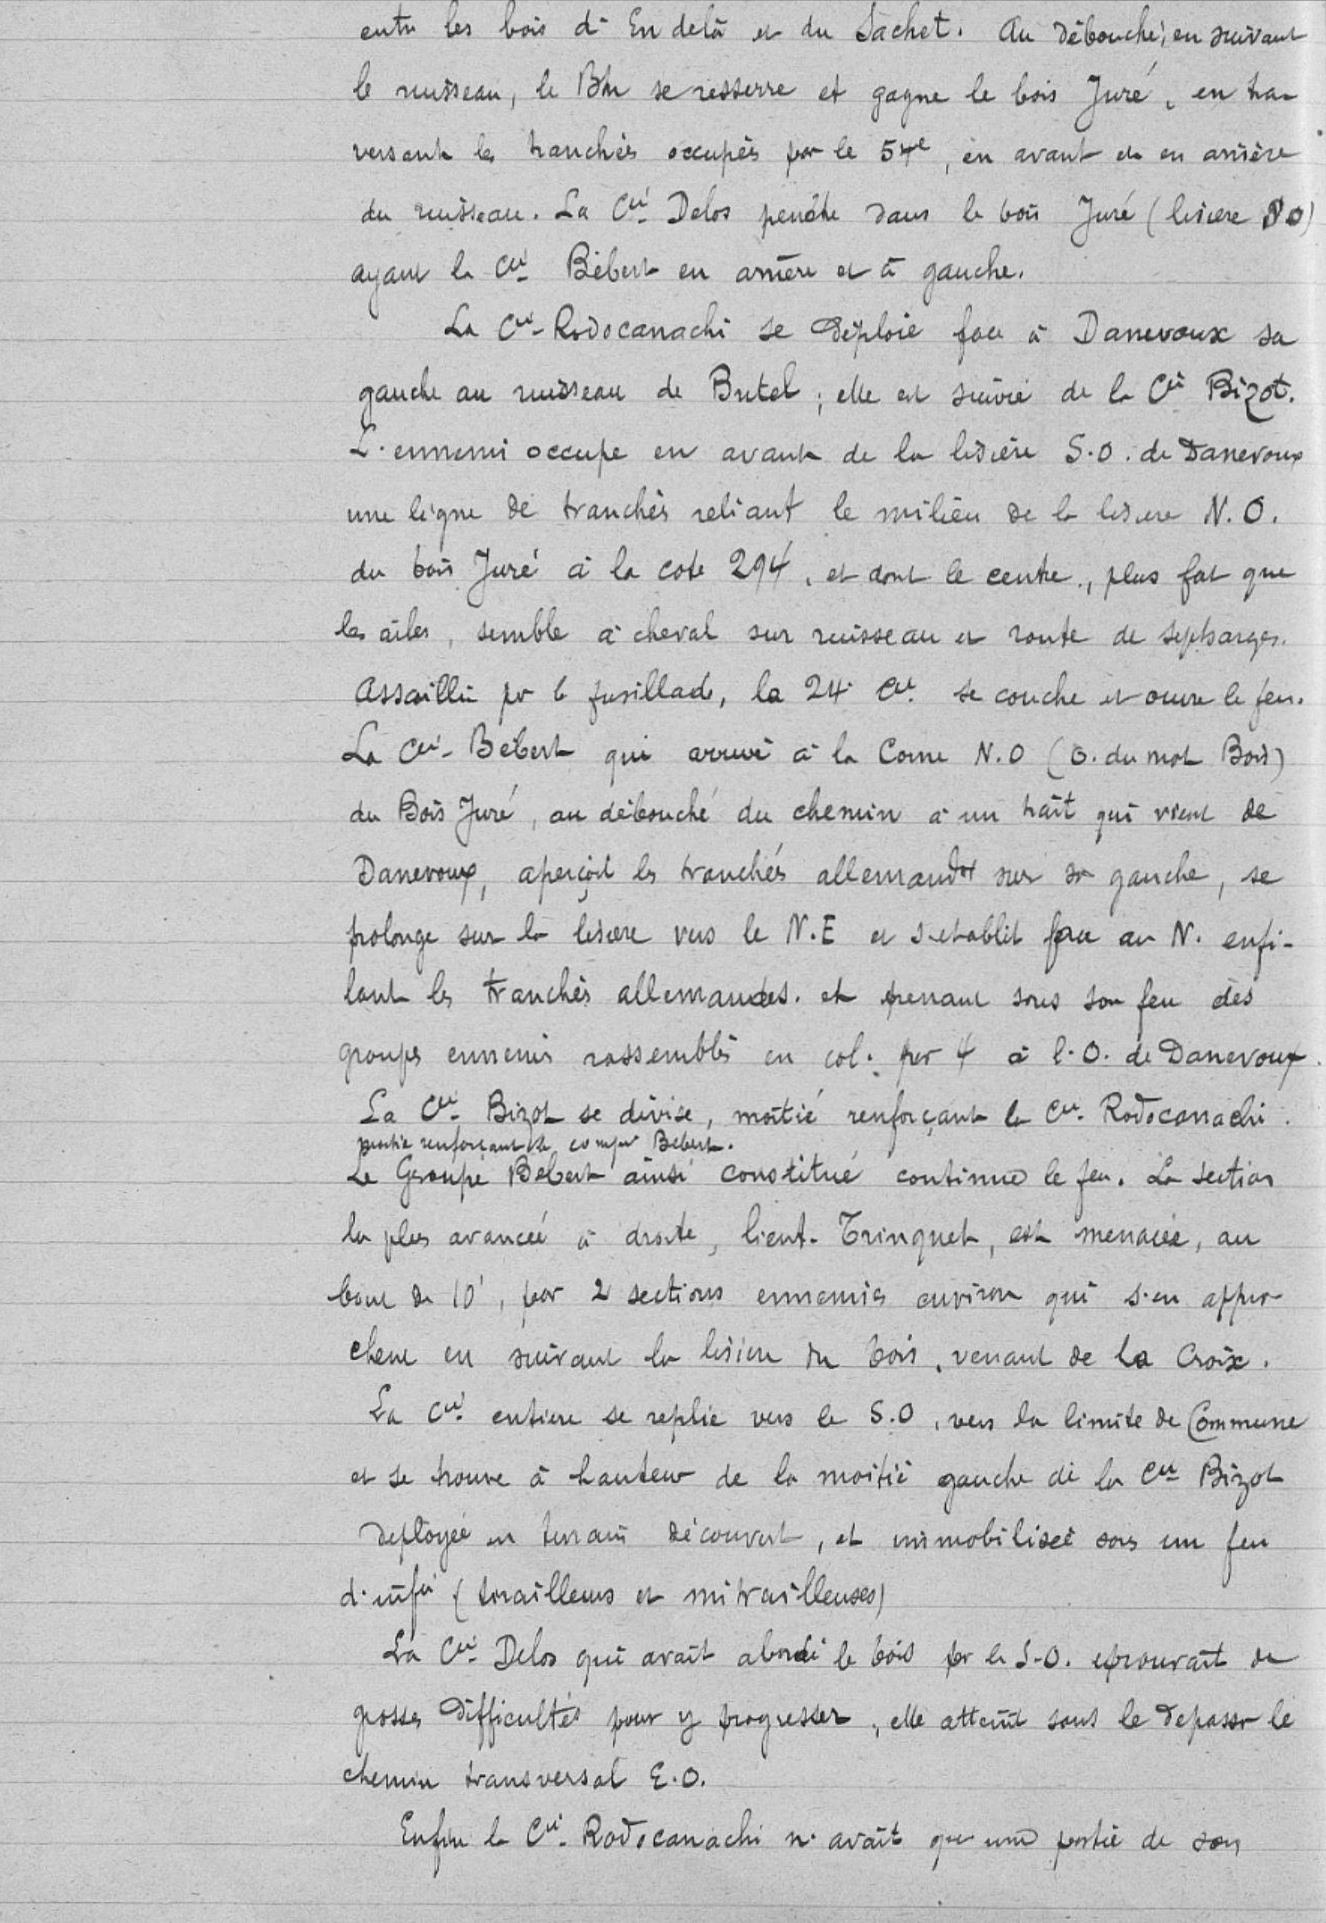 entre les bois d'En delà et du Sachet. Au débouché, en suivant
le ruisseau, le Bln se resserre et gagne le bois Juré, en tra-
versant les tranchées occupées par le 54e, en avant et en arrière
du ruisseau. La Cie Delos pénètre dans le bois Juré (lisière SO)
ayant la Cie Bébert en arrière et à gauche.
La Cie Rodocanachi se déploie face à Danevoux sa
gauche au ruisseau de Butel ; elle est suivie de la Cie Bizot.
L'ennemi occupe en avant de la lisière S.O. de Danevoux
une ligne de tranchées reliant le milieu de la lisière N.O.
du bois Juré à la cote 294, et dont le centre, plus fort que
les ailes, semble à cheval sur ruisseau et route de Septsarges.
Assaillie par la fusillade, la 24e Cie se couche et ouvre le feu.
La Cie Bébert qui arrive à la Corne N.O (O. du mot Bois)
du Bois Juré, au débouché du chemin à un trait qui vient de
Danevoux, aperçoit les tranchées allemandes sur sa gauche, se
prolonge sur la lisière vers le N.E et s'etablit face au N. enfi-
lant les tranchées allemandes. et prenant sous son feu des
groupes ennemis rassemblés en col. par 4 à l'O. de Danevoux.
La Cie Bizot se divise, moitié renforçant la Cie Rodocanachi.
partie renforçant la comp. Bébert.
Le Groupe Bébert ainsi constitué continue le feu. La section
la plus avancée à droite, lieut. Trinquet, est menacée, au
bout de 10', par 2 sections ennemies environ qui s'en appro-
chent en suivant la lisière du bois, venant de la Croix.
La Cie entière se replie vers le S.O, vers la limite de Commune
et se trouve à hauteur de la moitié gauche de la Cie Bizot
deployée en terrain découvert, et immobilisée sous un feu
d'infie (tirailleurs et mitrailleuses)
La Cie Delos qui avait abordé le bois par le S.O. eprouvait de
grosses difficultés pour y progresser, elle atteint sans le depasser le
chemin transversal E.O.
Enfin la Cie Rodocanachi n'avait que une partie de son